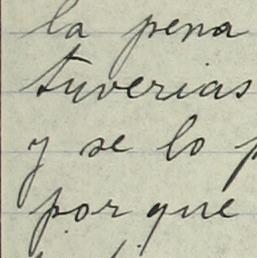 la pena
tuverias
y se lo p
por que